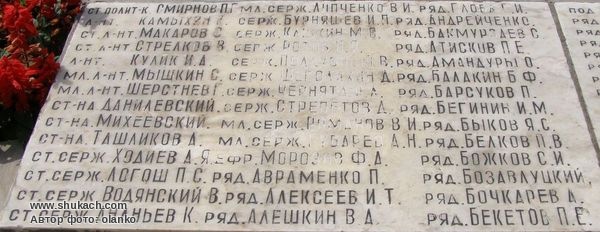 СТ.ПОЛИТ-К. СМИРНОВ П.Г. МЛ.СЕРЖ. ЛИПЧЕНКО В.И. РЯД. ГЛОБА Г.И.
Л-НТ. КАМЫХИН СЕРЖ. БУРНЯШЕВ И.П. РЯД. АНДРЕЙЧЕНКО
Л-НТ. МАКАРОВ С. СЕРЖ. М.В. РЯД. БАКМУРЗАЕВ С.
СТ. Л-НТ. СТРЕЛКОВ В. СЕРЖ. РЯД. АТИСКОВ П.Е.
Л-НТ. КУЛИК И.А. СЕРЖ. В. РЯД. АМАНДУРЫ О.
МЛ.Л-НТ. МЫШКИН С. СЕРЖ. Д. РЯД. БАЛАКИН Б.Ф.
МЛ.Л-НТ. ШЕРСТНЕВ Г. СЕРЖ. РЯД. БАРСУКОВ П.
СТ-НА ДАНИЛЕВСКИЙ. СЕРЖ. СТРЕПЕТОВ Д. РЯД. БЕГИНИН И.М.
СТ-НА. МИХЕЕВСКИЙ. МЛ.СЕРЖ. В.И. РЯД. БЫКОВ Я.С.
СТ-НА. ТАШЛИКОВ А. МЛ.СЕРЖ. А.Н. РЯД. БЕЛКОВ П.В.
СТ.СЕРЖ. ХОДИЕВ А.Я. ЕФР. МОРОЗОВ Ф.А. РЯД. БОЖКОВ С.И.
СТ.СЕРЖ. ЛОГОШ П.С. РЯД. АВРАМЕНКО П. РЯД. БОЗАВЛУЦКИЙ.
СТ.СЕРЖ. ВОДЯНСКИЙ В. РЯД. АЛЕКСЕЕВ И.Т. РЯД. БОЧКАРЕВ А.
СТ.СЕРЖ. АНАНЬЕВ К. РЯД. АЛЕШКИН В.А. РЯД. БЕКЕТОВ П.Е.
www.shukach.com
Автор фото: olanko